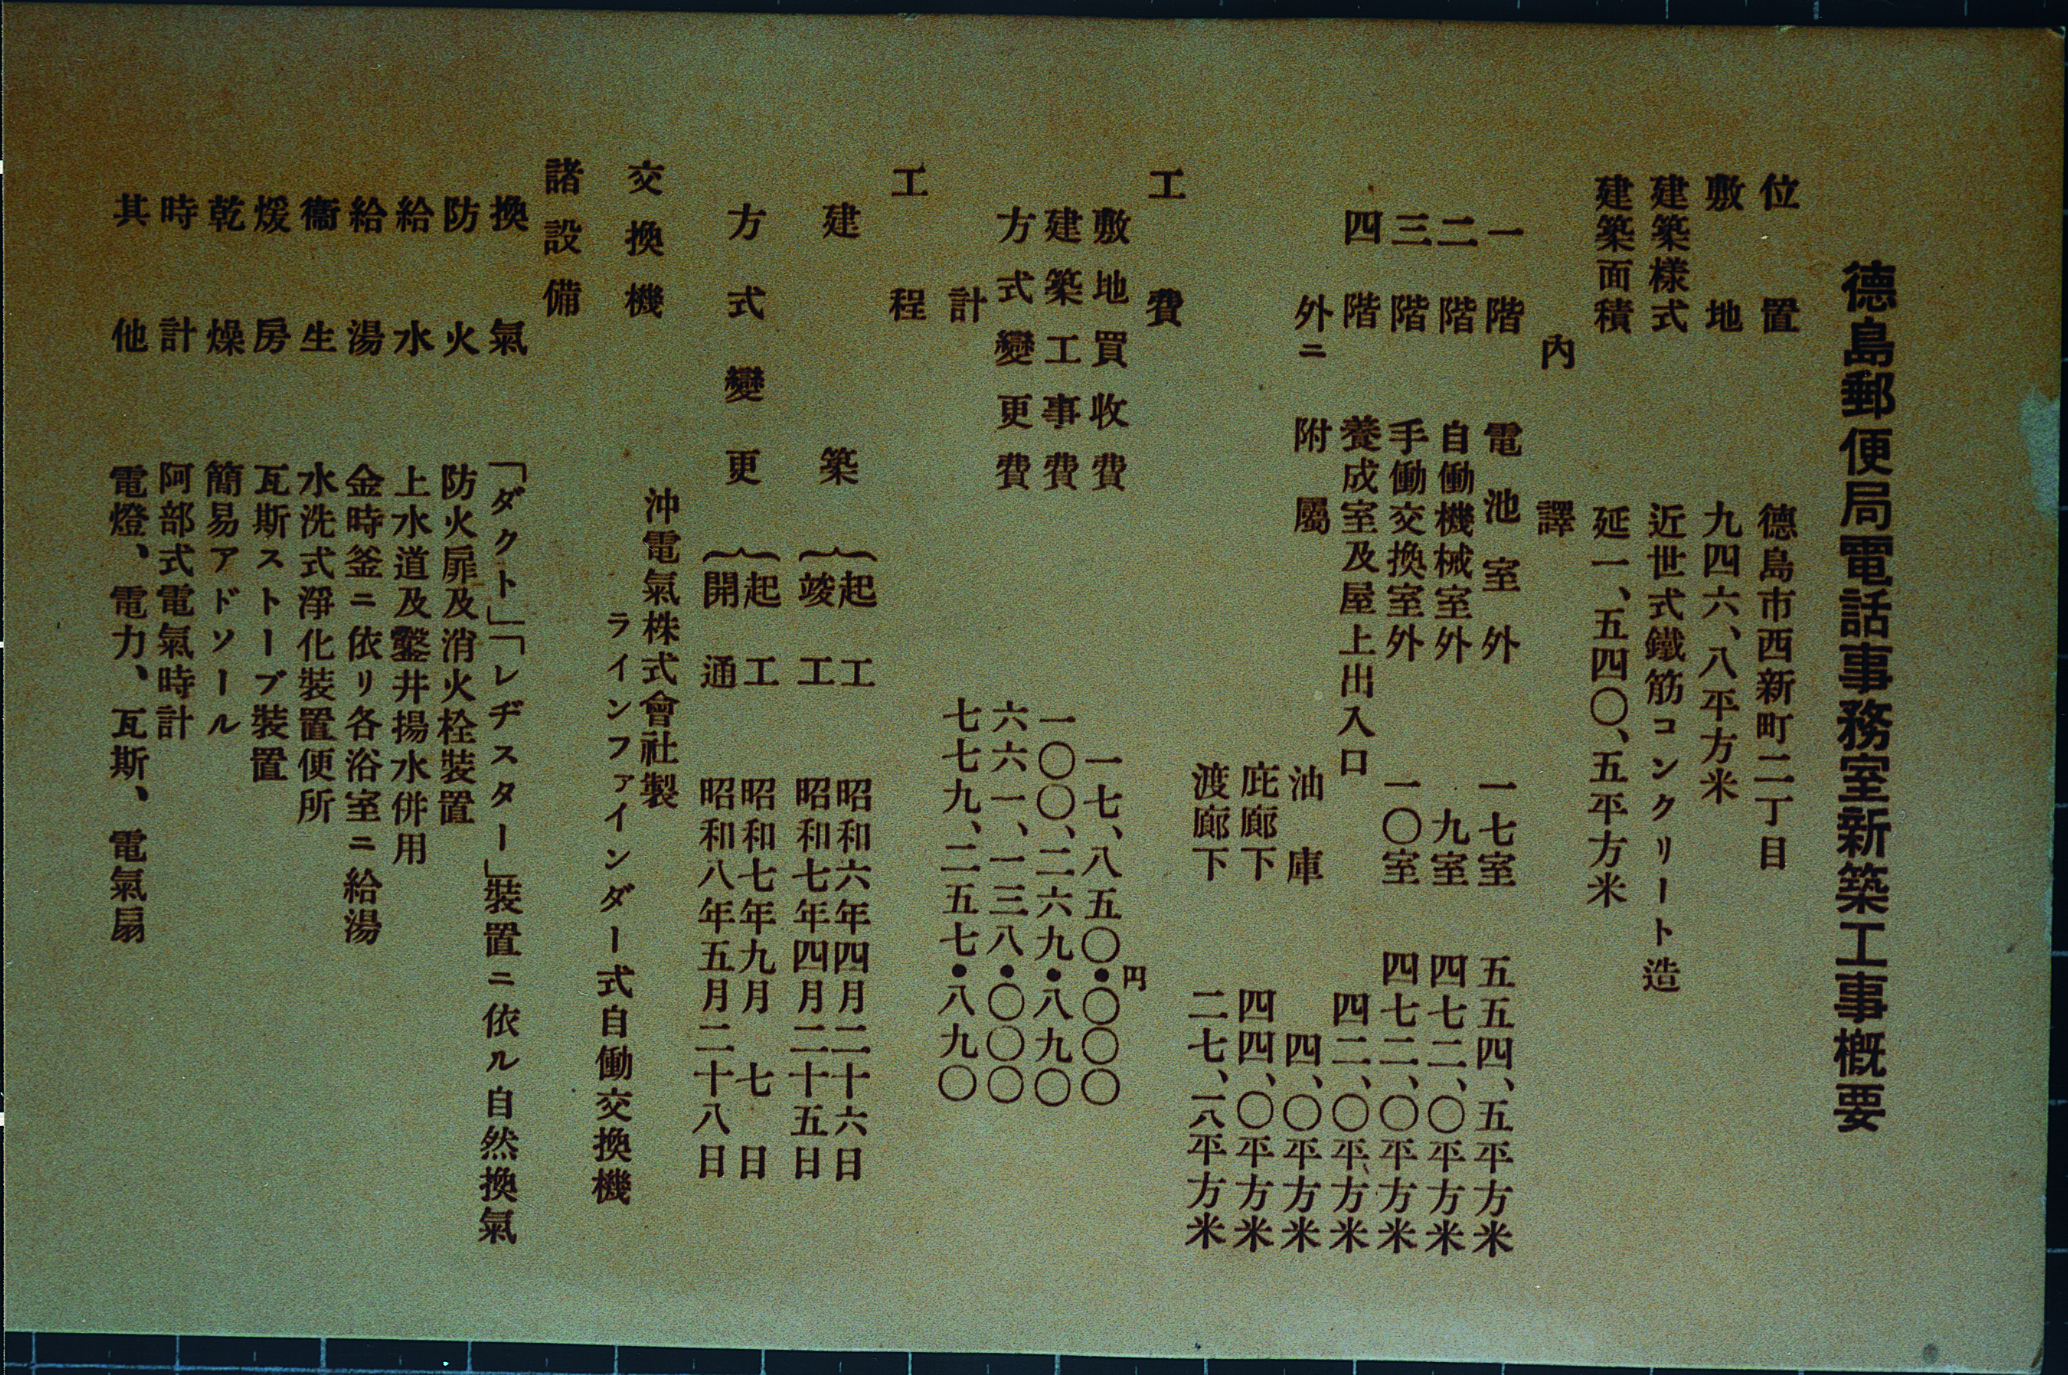 德島郵便局電話事務室新築工事槪要
位置 德島市西新町二丁目
敷地 九四六、八平方米
建築樣式 近世式鐵筋コンクリート造
建築面積 延一、五四〇、五平方米
內譯
一階 電池室外 一七室 五五四、五平方米
二階 自働機械室外 九室 四七二、〇平方米
三階 手働交換室外 一〇室 四七二、〇平方米
四階 養成室及屋上出入口 四二、〇平方米
外ニ附屬 油庫 四、〇平方米
庇廊下 四四、〇平方米
渡廊下 二七、一八平方米
工費
円
敷地買收費 一七、八五〇・〇〇〇
建築工事費 一〇〇、二六九・八九〇
方式變更費 六六一、一三八・〇〇〇
計 七七九、二五七・八九〇
工程
建築 起工 昭和六年四月二十六日
竣工 昭和七年四月二十五日
方式變更 起工 昭和七年九月七日
開通 昭和八年五月二十八日
交換機 沖電氣株式會社製
ラインファインダー式自働交換機
諸設備
換氣 「ダクト」「レヂスター」裝置ニ依ル自然換氣
防火 防火扉及消火栓裝置
給水 上水道及鑿井揚水併用
給湯 金時釜ニ依リ各浴室ニ給湯
衞生 水洗式淨化裝置便所
煖房 瓦斯ストーブ裝置
乾燥 簡易アドソール
時計 阿部式電氣時計
其他 電燈、電力、瓦斯、電氣扇